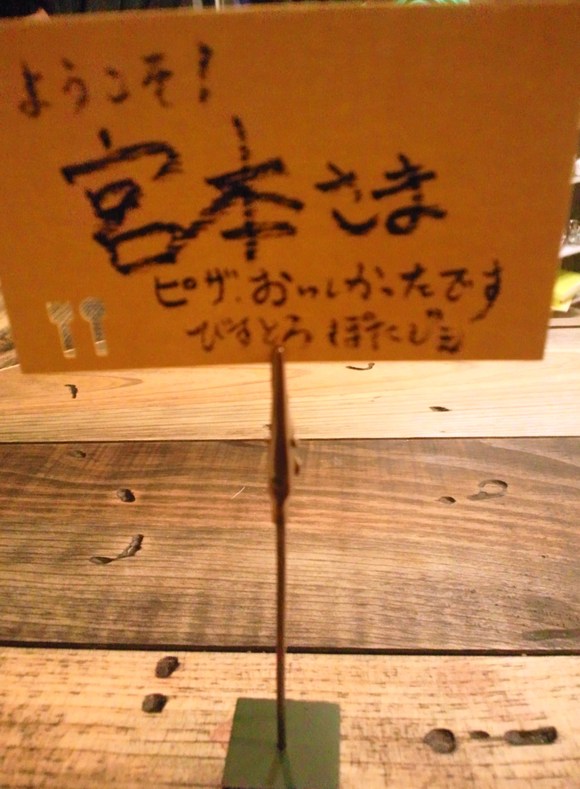 ようこそ!
宮本さま
ピザ、おいしかったです
びすとろ ぽたじぇ